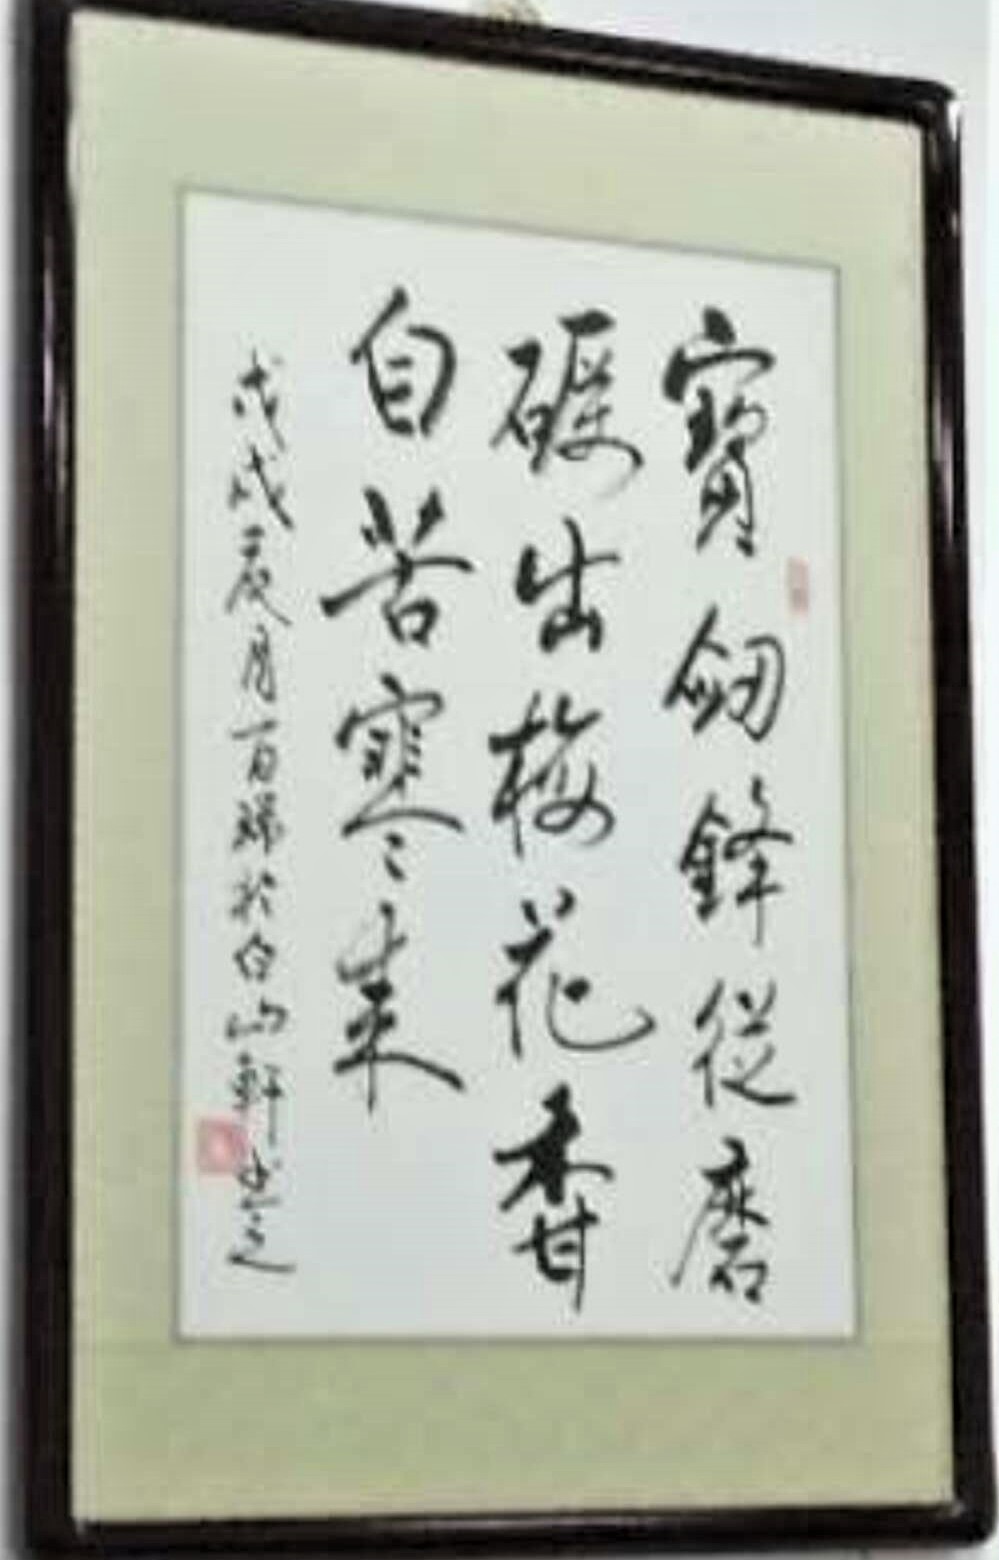 寶劒鋒從磨
礪出梅花香
自苦寒来
戊戌之夏月百錦於白山軒書之